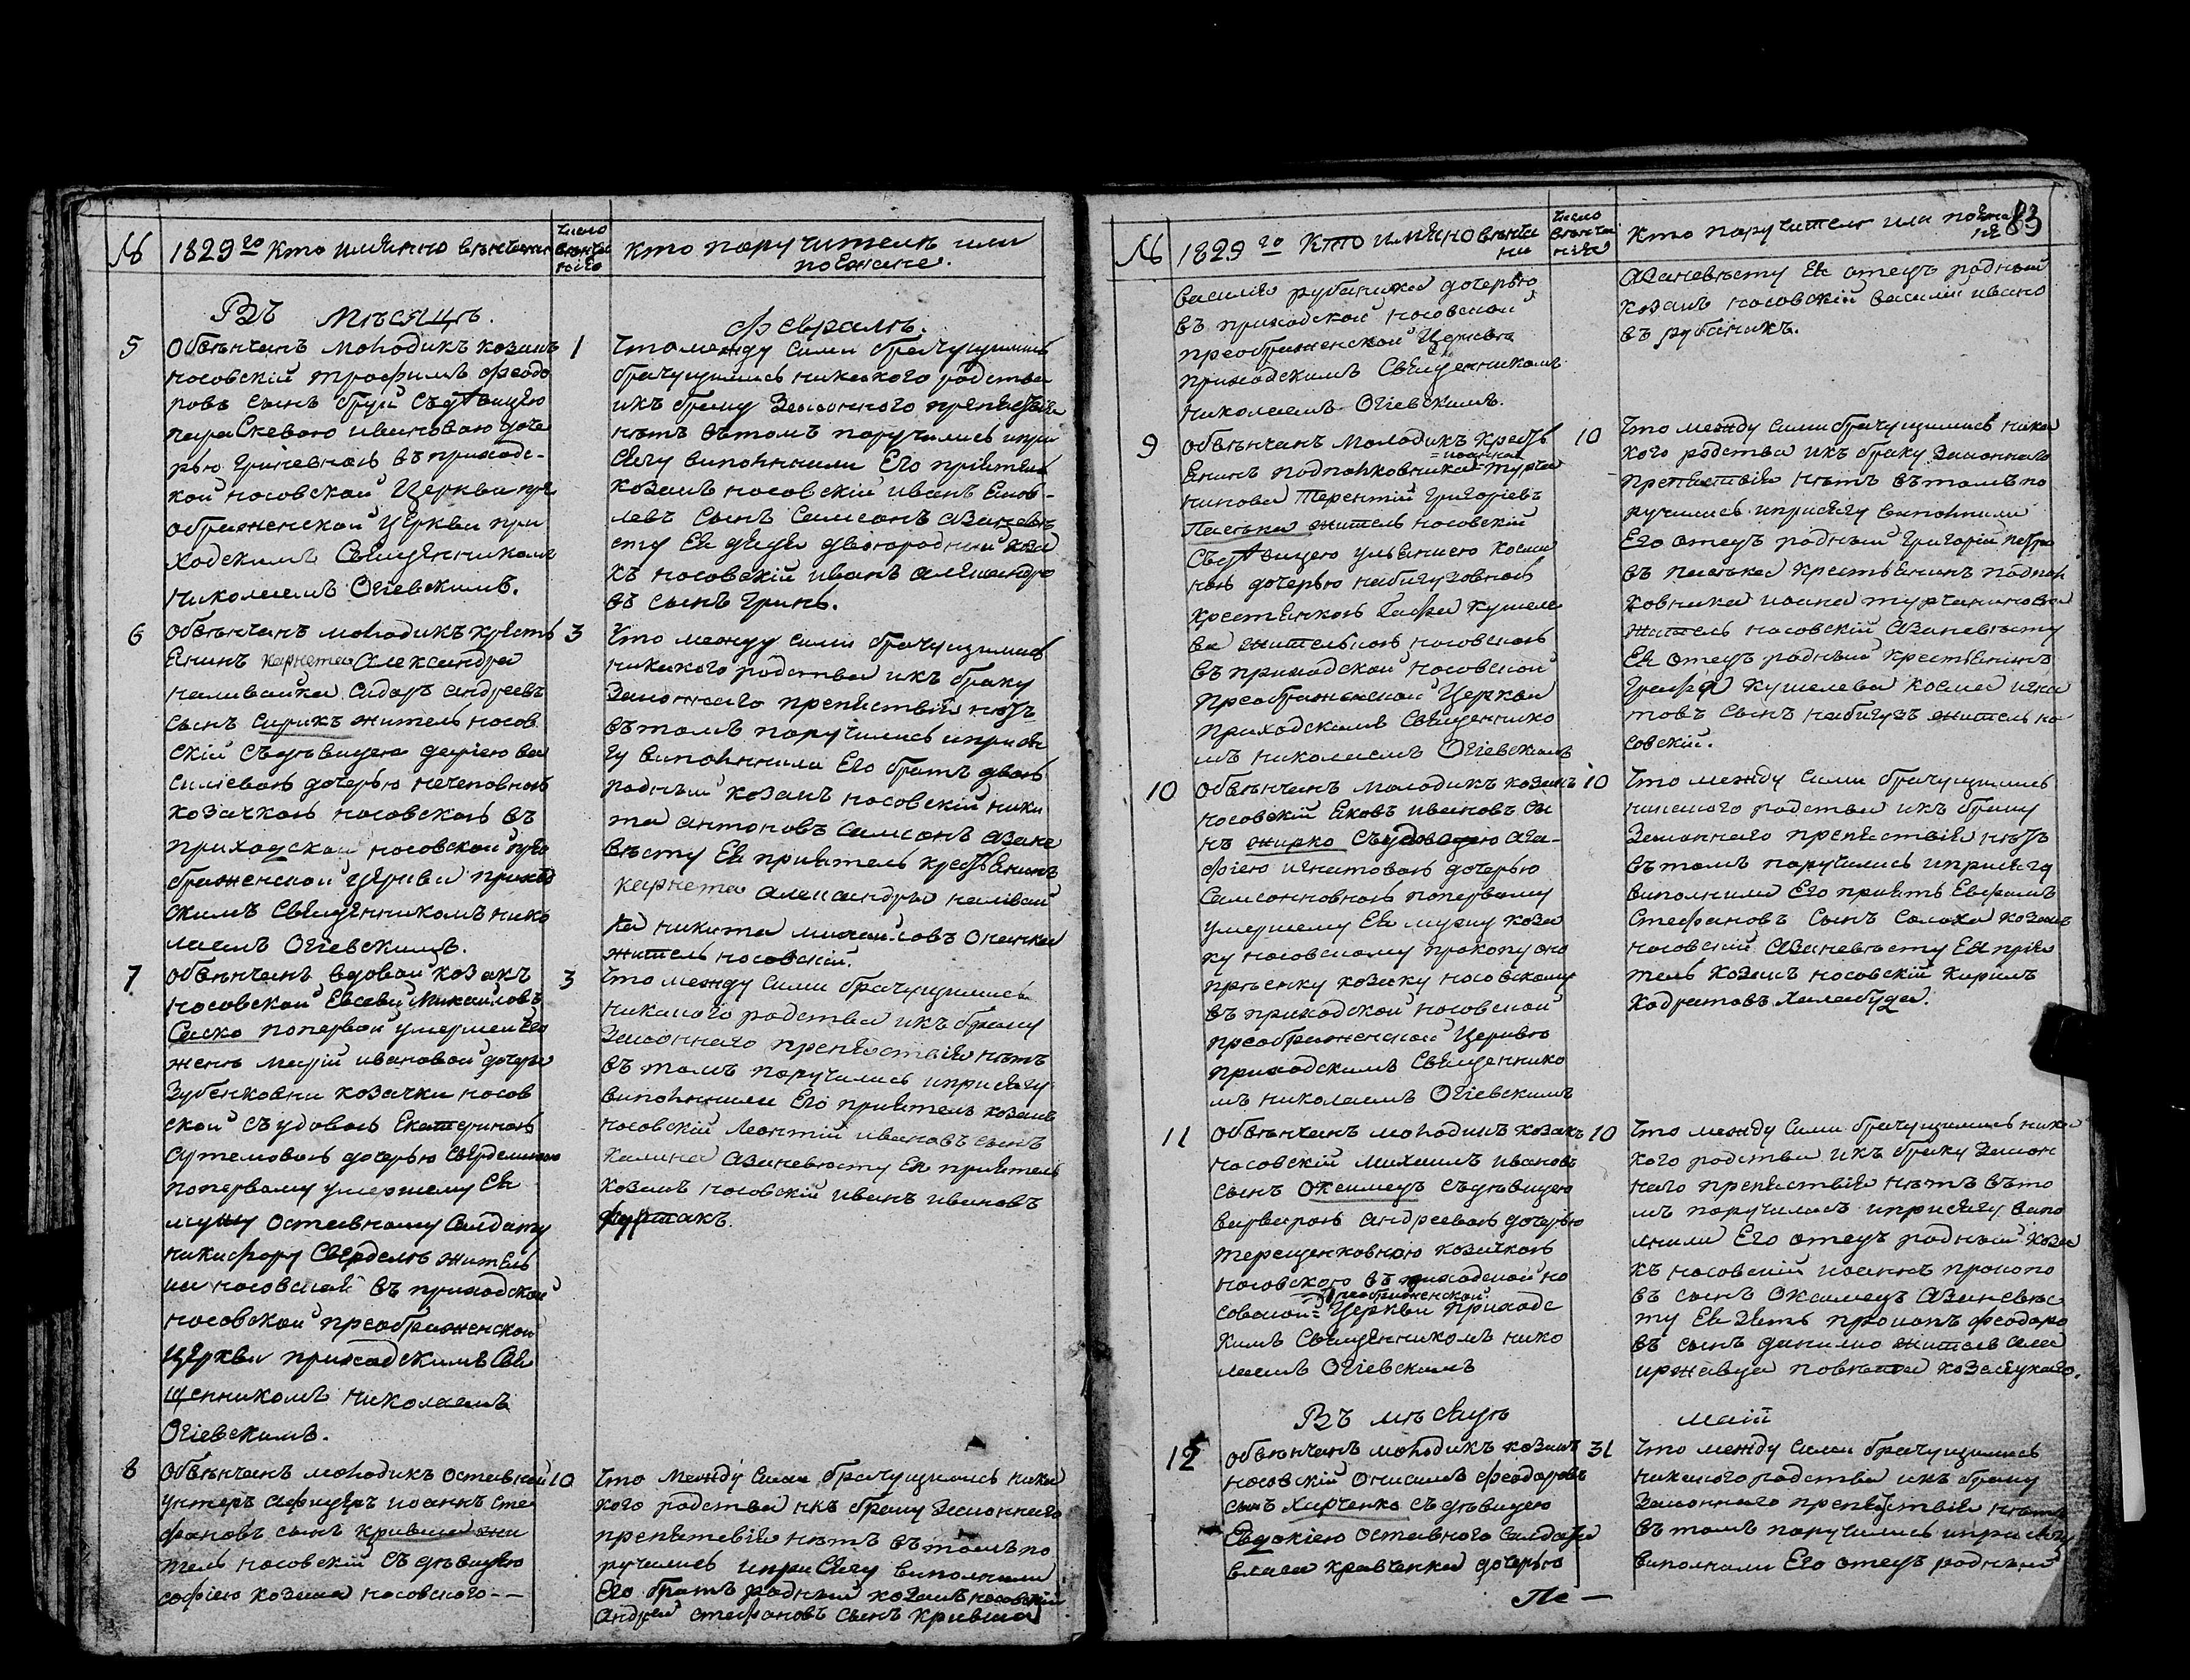 № 1829го Кто имянно венчани
число венчанія
Кто поручители или поезжане.
Въ Месяце.
Феврале.
5
Обвенчанъ молодикъ козакъ
носовскій трофимъ феодо
ровъ сынъ съдевицею
параскевою ивановою доче
рью гриневною въ приходс-
кой носовской Церкви пре
ображенской церкви при
ходскимъ Священникомъ
Николаемъ Огіевскимъ.
1
Что между сими брачущимись
брачущимись никакого родства
икъ браку Законного препятствія
нетъ вътомъ поручились ипри
сягу виполнили Его пріятель
козакъ носовскій иванъ
левъ сынъ Самсонъ Азаневе
сту Ея дядя двоюродний коза
къ носовскій иванъ александро
въ сынъ гринь.
6
Обвенчанъ молодикъ кресть
янинъ карнета Александра
наливайка Сидоръ андреевъ
сынъ сирикъ житель носов
скій съдевицею даріею ва
силіевою дочерью нечеповною
козачкою носовскою въ
приходской носовской прео
браженской церкви приход
скимъ Священникомъ нико
лаемъ Огіевскимъ.
3
Что между сими брачущимись
никакого родства икъ браку
Законнаго препятствія нетъ
вътомъ поручились иприся
гу виполнили Его братъ двою
родній козакъ носовскій ники
та антоновъ Самсонъ Азане
весту Ея пріятель крестьянинъ
карнета александра наливай
ка никита михайловъ Онанка
житель носовскій.
7
Обвенчанъ вдовой козакъ
носовской Евсевій Михайловъ
Саско попервой умершей Его
жене маріи ивановой дочери
Зубенковни козачки носов
ской съ удовою Екатериною
Артемовою дочерью Свердлиною
попервому умершему Ея
мужу оставному Салдату
никифору Сверделе житель
ки носовской въ приходской
носовской преображенской
Церкви приходскимъ Свя
щенникомъ Николаемъ
Огіевскимъ.
3
Что между сими брачущимись
никакого родства икъ браку
Законнаго препятствія нетъ
въ томъ поручились иприсягу
виполнили Его пріятель козакъ
носовскій Леонтій ивановъ сынъ
Калина Азаневесту Ея пріятель
козакъ носовскій иванъ ивановъ
фуртакъ.
8
Обвенчанъ молодикъ оставной
унтеръ афицеръ иоаннъ Сте
фановъ сынъ кривша жи
тель носовскій съ девицею
софіею козака носовского --
10
Что между сими брачущимись ника
кого родства икъ браку Законнаго
препятствія нетъ въ томъ по
ручились иприсягу виполнили
Его братъ родный козакъ носовскій
Андрей стефановъ сынъ кривша
83
№ 1829го Кто имянно венча
ни
число венчанія
Кто поручители или поезжа
не
Василія рубаника дочерью
въ приходской носовской
преображенской Церкви
приходскимъ Священникомъ
Николаемъ Огіевскимъ.
Азаневесту Ея отецъ родный
козакъ носовскій василій ивано
въ рубаникъ.
9
Обвенчанъ Молодикъ кресть
янинъ подполковника Турча
нинова Терентій григоріевъ
житель носовскій
Съдевицею ульяніею косми
ною дочерью набигузовною
крестянкою Графа кушеле
ва жителькою носовскою
въ приходской носовской
Преображенской Церкви
приходскимъ Священнико
мъ николаемъ Огіевскимъ
10
Что между сими брачущимись ника
кого родства икъ браку Законнаго
препятствія нетъ вътомъ по
ручились иприсягу виполнили
Его отецъ родный григорій петро
въ крестьянинъ подпол
ковника иоана турчанинова
житель носовскій Азаневесту
Ея отецъ родный крестьянинъ
Графа кушелева косма игна
товъ сынъ набигузъ житель но
совскій.
10
Обвенчанъ Молодикъ козакъ
носовскій Яковъ ивановъ сы
нъ жирко съудовою ага-
фіею игнатовою дочерью
Самсоновною попервому
умершему Ея мужу коза
ку носовскому прокопу
козаку носовскому
въ приходской носовской
преображенской Церкви
приходскимъ Священнико
мъ Николаемъ Огіевскимъ
10
Что между сими брачущимись
никакого родства икъ браку
Законнаго препятствія нетъ
въ томъ поручились иприсягу
виполнили Его пріять Ефремъ
Стефановъ Сынъ Солоха козакъ
носовскій Азаневесту Ея прія
тель козакъ носовскій Кирилъ
Кодратовъ Халабуда.
11
Обвенчанъ молодикъ козакъ
носовскій Михаилъ ивановъ
сынъ Оксимецъ Съдевицею
варварою андреевою дочерью
терещенковною козачкою
носовскою въ приходской но
совской преображенской Церкви приходс
кимъ Священникомъ нико
лаемъ Огіевскимъ
10
Что между сими брачущимись ника
кого родства икъ браку Закон
наго препятствія нетъ въто
мъ поручились иприсягу випо
лнили Его отецъ родный коза
къ носовскій иоаннъ прокопо
въ сынъ Оксимецъ Азаневес
ту Ея зять прокопъ феодоро
въ сынъ данилко житель села
иржавца повета козелецкаго.
Въ месяце
Маій
12
Обвенчанъ молодикъ козакъ
носовскій Онисимъ феодоровъ
сынъ Харченко съдевицею
Евдокіею оставного Салдата
власа кравченка дочерью
31
Что между сими брачущимись
никакого родства икъ браку
Законнаго препятствія нетъ
въ томъ поручились иприсягу
виполнили Его отецъ родный